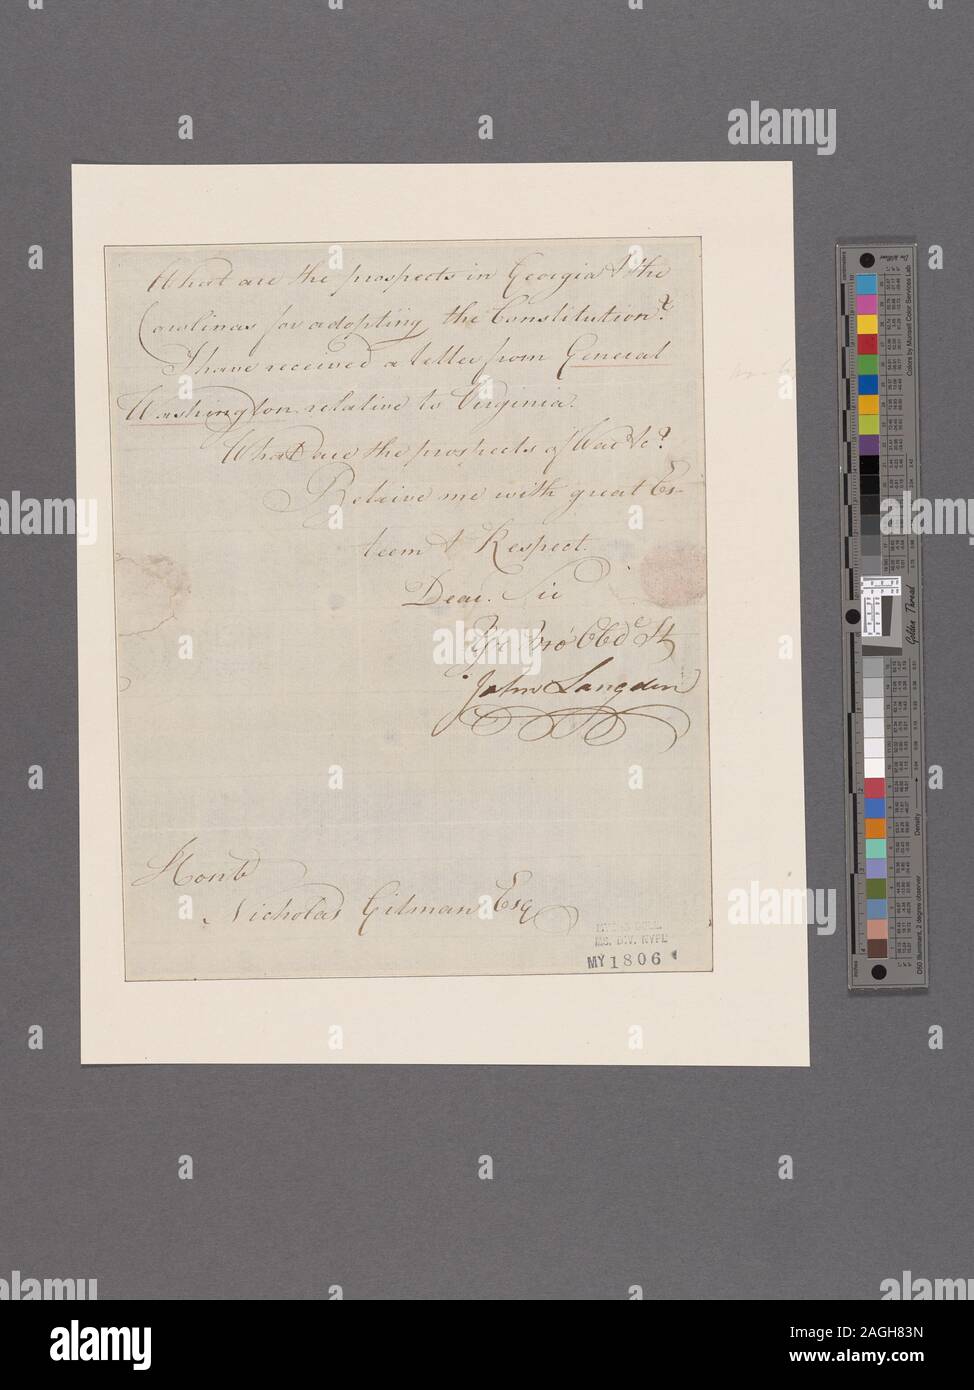 What are the prospects in Georgia & the
Carolinas for adopting the Constitution?
I have received a letter from General
Washington relative to Virginia.
What are the prospects of War &c?
Beleive me with great Es-
teem & Respect.
Dear. Sir
Yr Mo Obdᵉ St
John Langdon
Honb
Nicholas Gilman Esq
MS. DIV. NYPL
MY 1806
Colors by Munsell Color Services Lab
Golden Thread
Density
D50 Illuminant, 2 degree observer
inches
alamy
a
alamy
Image ID: 2AGH83N
www.alamy.com